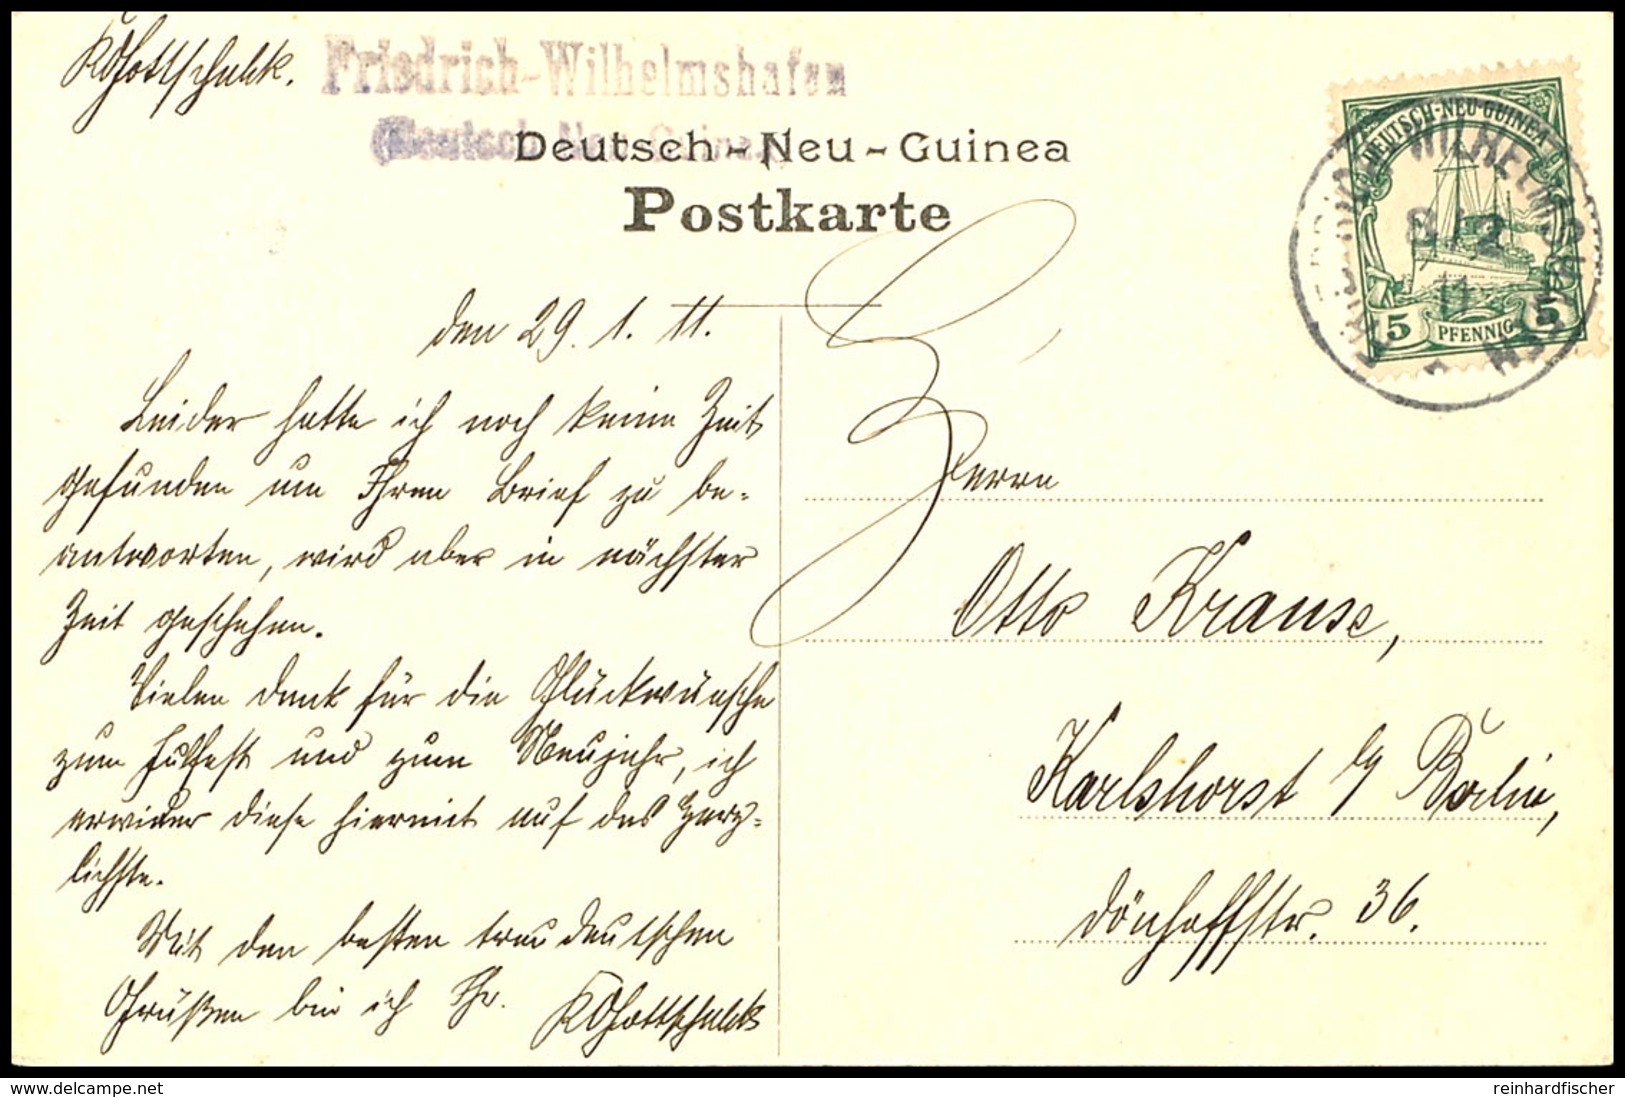 KGottschalk.
Friedrich-Wilhelmshafen
(Deutsch-Neu-Guinea)
Deutsch-Neu-Guinea
Postkarte
DEUTSCH-NEU-GUINEA
5 PFENNIG 5
WILHELMSHAFEN
8/2
11
den 29. 1. 11.
Leider hatte ich noch keine Zeit
gefunden um Ihren Brief zu be-
antworten, wird aber in nächster
Zeit geschehen.
Vielen dank für die Glückwünsche
zum Julfest und zum Neujahr, ich
erwider diese hiermit auf das Herz-
lichste.
Mit den besten treudeutschen
Grüßen bin ich Ihr. KGottschalk
Herrn
Otto Krause,
Karlshorst b/ Berlin,
Dönhoffstr. 36.
www.delcampe.net
reinhardfischer